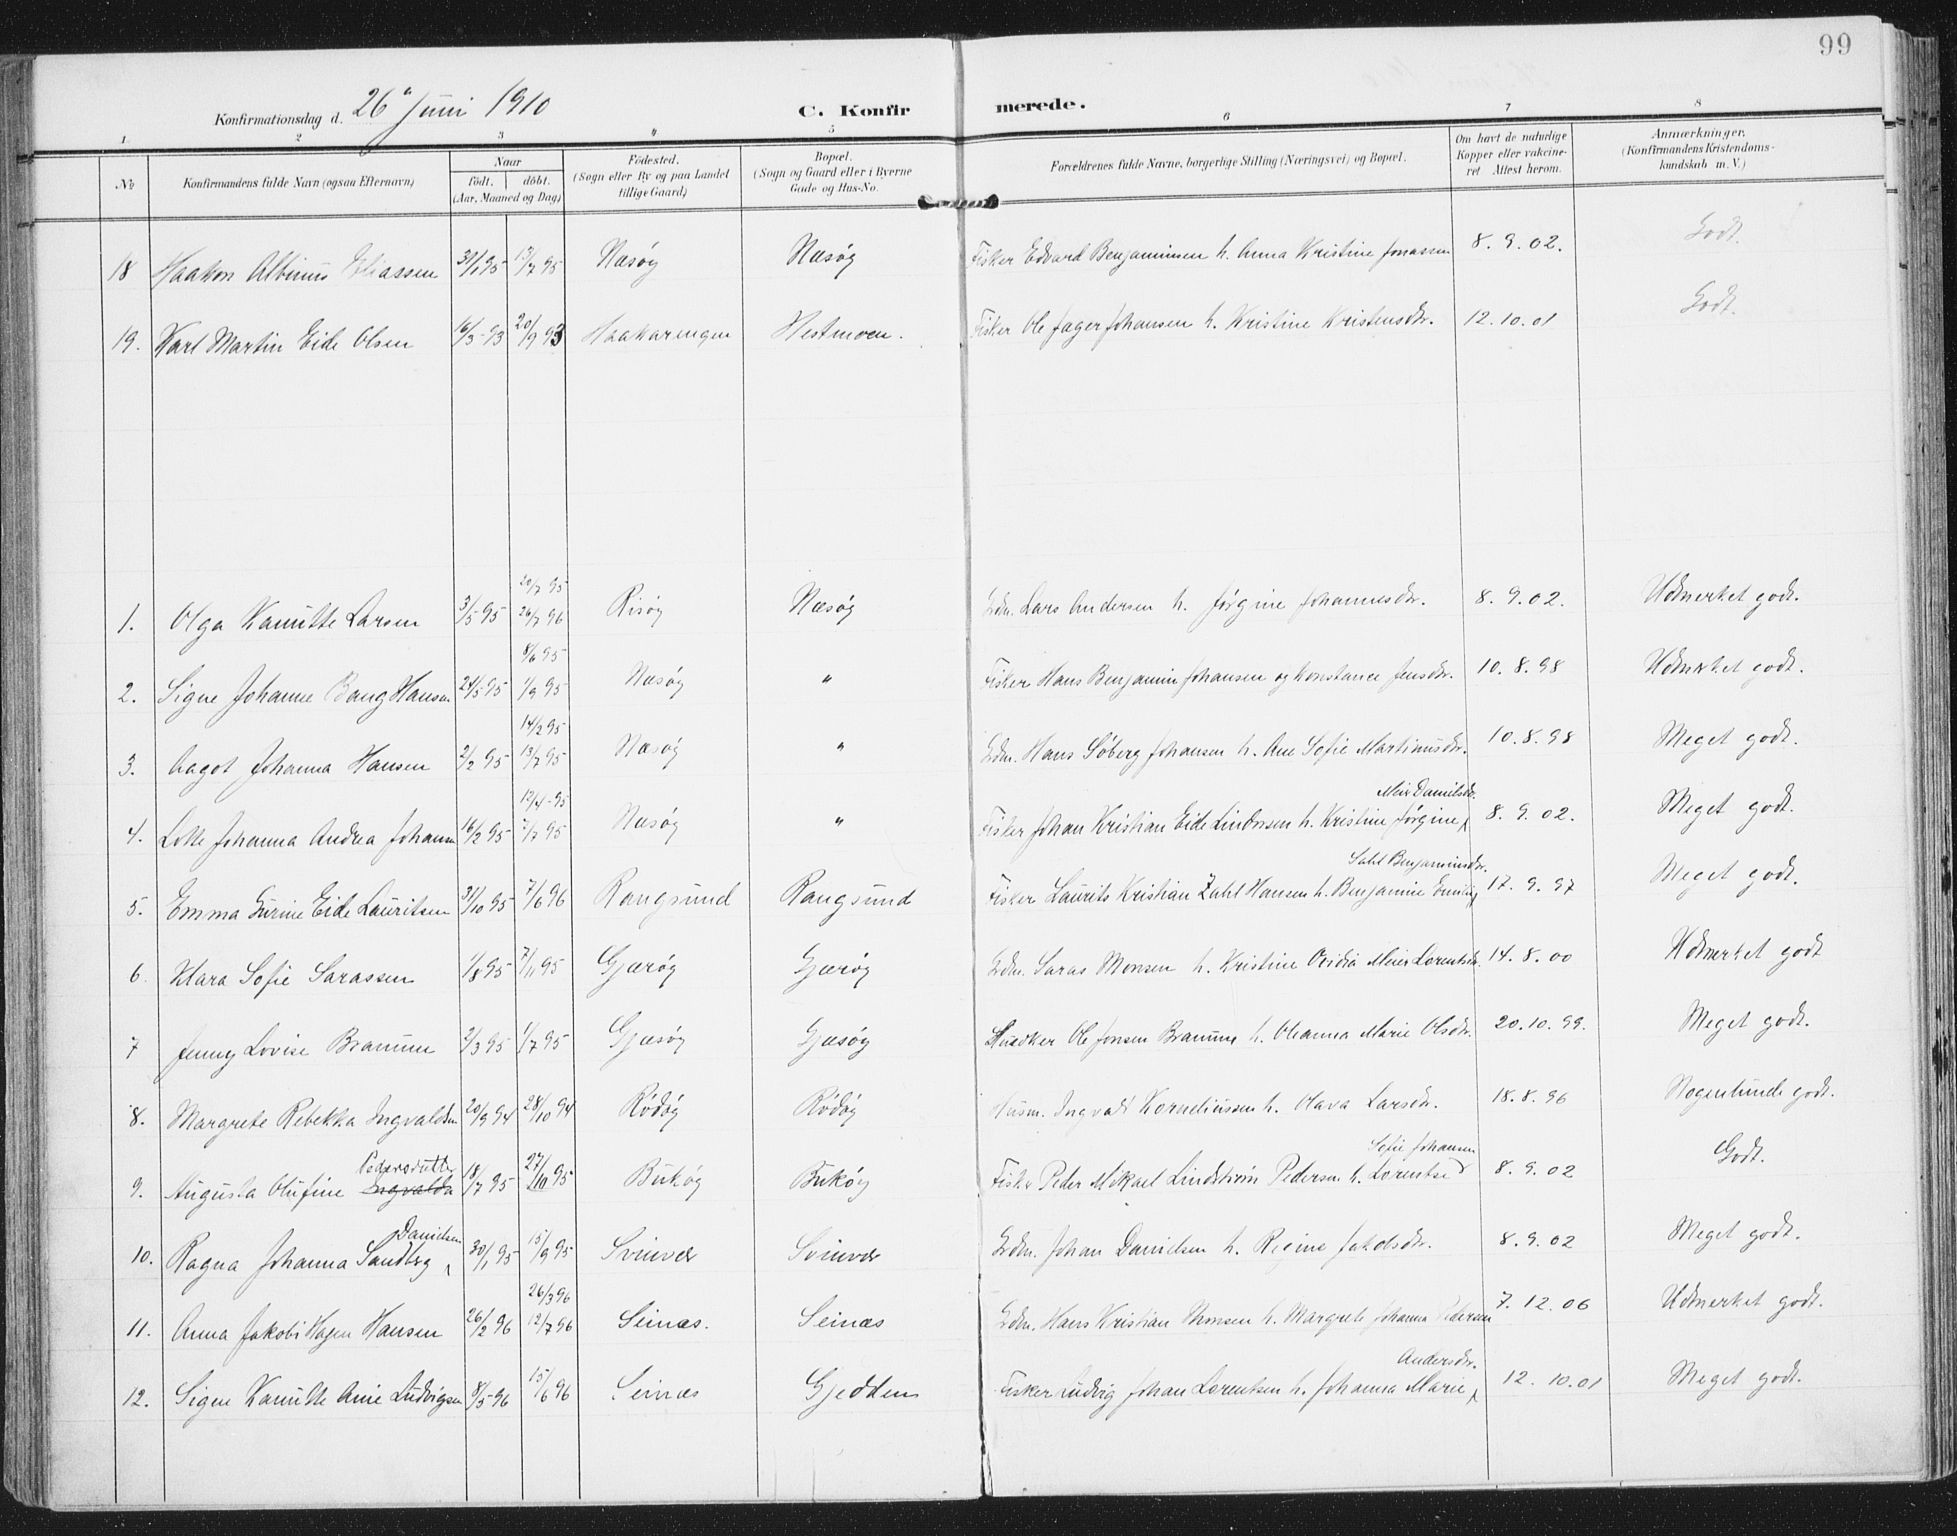 99
Konfirmationsdag d. 26' Juni 1910 C. Konfir merede.
1 2 3 4 5 6 7 8
No
Konfirmandens fulde Navn (ogsaa Efternavn)
Naar
født. døbt.
(Aar, Maaned og Dag)
Fødested.
(Sogn eller By og paa Landet
tillige Gaard)
Bopæl.
(Sogn og Gaard eller i Byerne
Gade og Hus-No.
Forældrenes fulde Navne, borgerlige Stilling (Næringsvei) og Bopæl.
Om havt de naturlige
Kopper eller vakcine-
ret Attest herom.
Anmærkninger.
(Konfirmandens Kristendoms-
kundskab m. V.)
18 Haakon Albinus Eliassen 31/1 95 13/7 95 Næsøy Næsøy Fisker Edvard Benjaminsen h. Anna Kristine Jonassen 8.9.02. Godt.
19. Karl Martin Eide Olsen 16/3-93 20/9 93 Haakaringen Hestmoen. Fisker Ole Jager Johansen h. Kristine Kristensdr. 12.10.01 Godt.
20/7 95
1. Olga Kamitte Larsen 3/5 95 26/7 96 Risøy Næsøy Grdm. Lars Andersen h. Jørgine Johannesdr. 8.9.02. Udmerket godt.
8/6 95
2. Signe Johanne Bang Hansen 24/5 95 1/9 95 Næsøy " Fisker Hans Benjamin Johansen og Konstance Jensdr. 10.8.98 Udmerket godt.
14/2 95
3. Aagot Johanna Hansen 2/2 95 13/7 95 Næsøy " Grdm. Hans Søberg Johansen h. Ane Sofie Martinusdr. 10.8.98 Meget godt.
12/4-95 Meier Danielsdr.
4. Lotte Johanna Andrea Johansen 16/2 95 7/7 95 Næsøy " Fisker Johan Kristian Eide Lindorsen h. Kristine Jørgine 8.9.02. Meget godt.
Sahl Benjaminsdr.
5. Emma Gurine Eide Lauritsen 31/10 95 7/6 96 Rangsund Rangsund Fisker Laurits Kristian Zahl Hansen h. Benjamine Emilie 17.9.97 Meget godt.
6. Klara Sofie Sarassen 1/8 95 7/11 95 Gjærøy Gjærøy Grdm. Saras Monsen h. Kristine Ovidia Meier Lorentsdr. 14.8.00 Udmerket godt
7 Jenny Lovise Bramun 2/3 95 1/7 95 Gjesøy Gjesøy Ole Jonsen Bramun h. Oleanna Marie Olsdr. 20.10.99. Meget godt.
8. Margrete Rebekka Ingvaldsen 20/9 94 28/10 94 Rødøy Rødøy Husm. Ingvald Korneliussen h. Olava Larsdr. 18.8.96 Nogenlunde godt.
Pedersdatter Sofie Johansen
9. Augusta Olufine Ingvalda 18/7 95 27/10 95 Bukøy Bukøy Fisker Peder Mikael Lindstrøm Pedersen h. Lorentse 8.9.02 Godt.
Danielsen
10. Ragna Johanna Sandberg 30/1 95 15/9 95 Svinvær Svinvær Grdm. Johan Danielsen h. Regine Jakobsdr. 8.9.02 Meget godt.
26/3 96
11. Anna Jakobi Hagen Hansen 26/2 96 12/7 96 Seinæs. Seinæs Grdm. Hans Kristian Monsen h. Margrete Johanna Pedersen 7.12.06 Udmerket godt.
Andersdr.
12. Signe Kamitte Anie Ludvigsen 8/5-96 15/6 96 Seinæs Gjedden Fisker Ludvig Johan Lorentsen h. Johanna Marie 12.10.01 Meget godt.